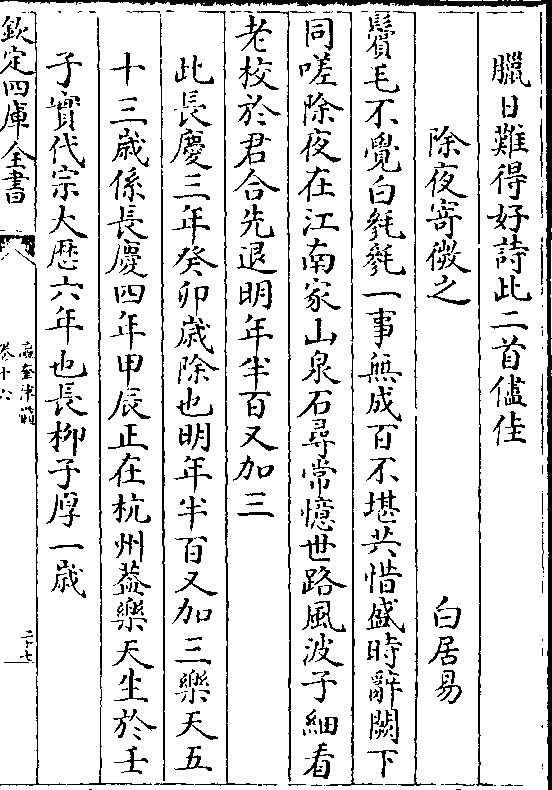 臘日難得好詩此二首儘佳
除夜寄微之　白居易
鬢毛不覺白毿毿一事無成百不堪共惜盛時辭闕下
同嗟除夜在江南家山泉石尋常憶世路風波子細看
老校於君合先退明年半百又加三
此長慶三年癸卯歲除也明年半百又加三樂天五
十三歲係長慶四年甲辰正在杭州葢樂天生於壬
子實代宗大厯六年也長柳子厚一歲
欽定四庫全書
瀛奎律髓
卷十六
二十七